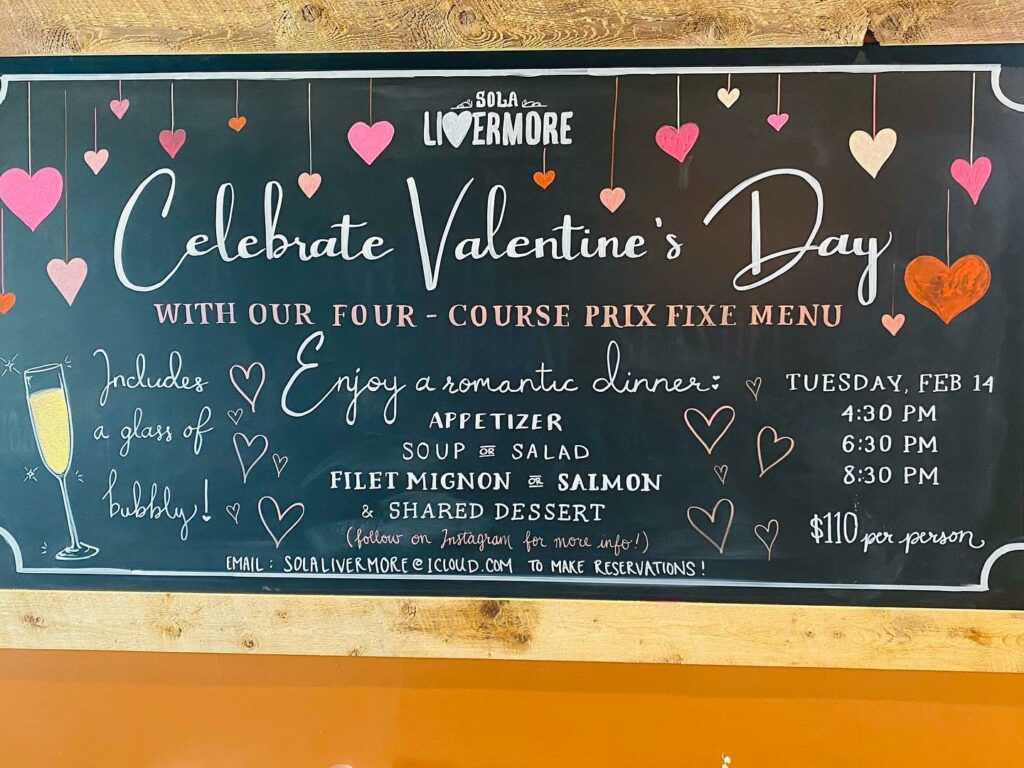 SOLA
LIVERMORE
Celebrate Valentine's Day
WITH OUR FOUR - COURSE PRIX FIXE MENU
Includes
a glass of
bubbly!
Enjoy a romantic dinner:
APPETIZER
SOUP OR SALAD
FILET MIGNON OR SALMON
& SHARED DESSERT
(follow on Instagram for more info!)
EMAIL: SOLALIVERMORE@ICLOUD.COM TO MAKE RESERVATIONS!
TUESDAY, FEB 14
4:30 PM
6:30 PM
8:30 PM
$110 per person